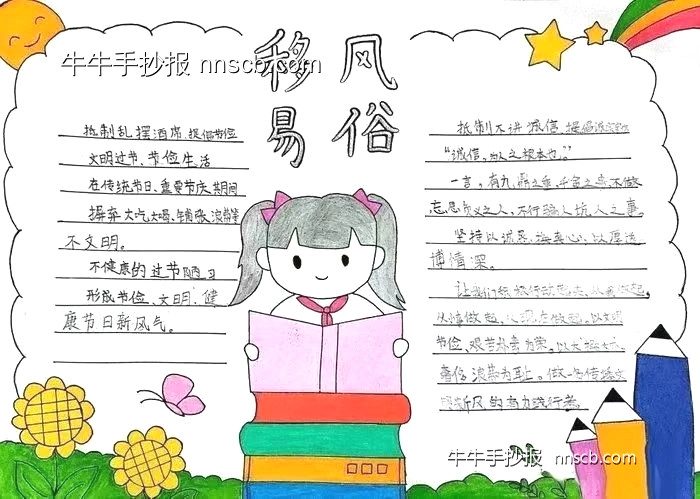 牛牛手抄报 nnscb.com
移风
易俗
抵制乱摆酒席、提倡节俭
文明过节、节俭生活
在传统节日、重要节庆期间
摒弃大吃大喝、铺张浪费等
不文明。
不健康的过节陋习
形成节俭、文明、健
康节日新风气。
抵制不讲诚信、提倡
“诚信,为人之根本也。”
一言,有九鼎之重,千金之来不做
忘恩负义之人,不行骗人坑人之事。
坚持以诚恳、换真心,以厚德
博情深。
让我们积极行动起来,从我做起,
从小事做起,从现在做起,以文明
节俭、艰苦朴素为荣。以大操大办、
奢侈浪费为耻。做一名传播文
明新风的有力践行者
牛牛手抄报 nnscb.com